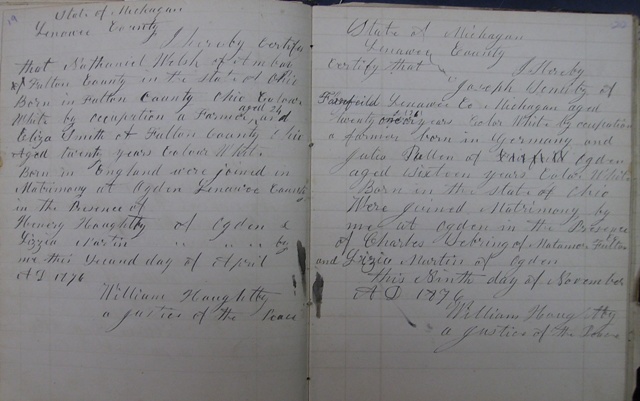 State of Michagan
Lenawee County
I hereby Certify
that Nathaniel Welsh of Amboy
Fulton County in the state of Ohio
Born in Fulton County Ohio Colour
White by occupation a Farmer aged 24 and
Eliza Smith of Fulton County Ohio
Aged twenty years Colour White
Born in England were joined in
Matrimony at Ogden Lenawee County
in the Presence of
Henery Haughtby of Ogden &
Lizzia Martin " " " by
me this Second day of April
AD 1876
William Haughtby
a justice of the Peace
State of Michagan
Lenawee County
I Hereby
Certify that
Joseph of
Fairfeild Lenawee Co Michagan aged
twenty one years Color White by occupation
a farmer born in Germany and
Julia Pallen of Ogden
aged Sixteen years Color White
Born in the state of Ohio
Were joined Matrimony by
me at Ogden in the Presence
of Charles Sebring of Fulton
and Lizzia Martin of Ogden
this Ninth day of November
AD 1876
William Haughtby
a justice of the Peace